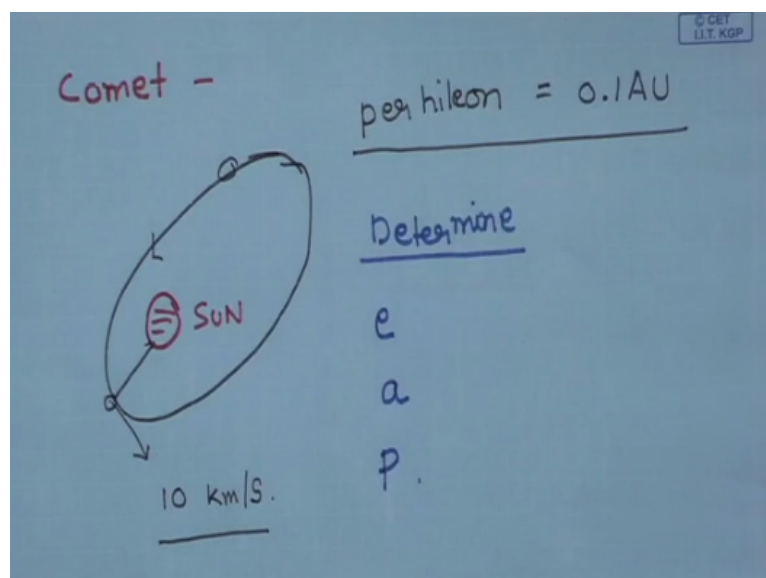 © CET
I.I.T. KGP
Comet -
perhileon = 0.1AU
Determine
SUN
e
a
P.
10 km/s.